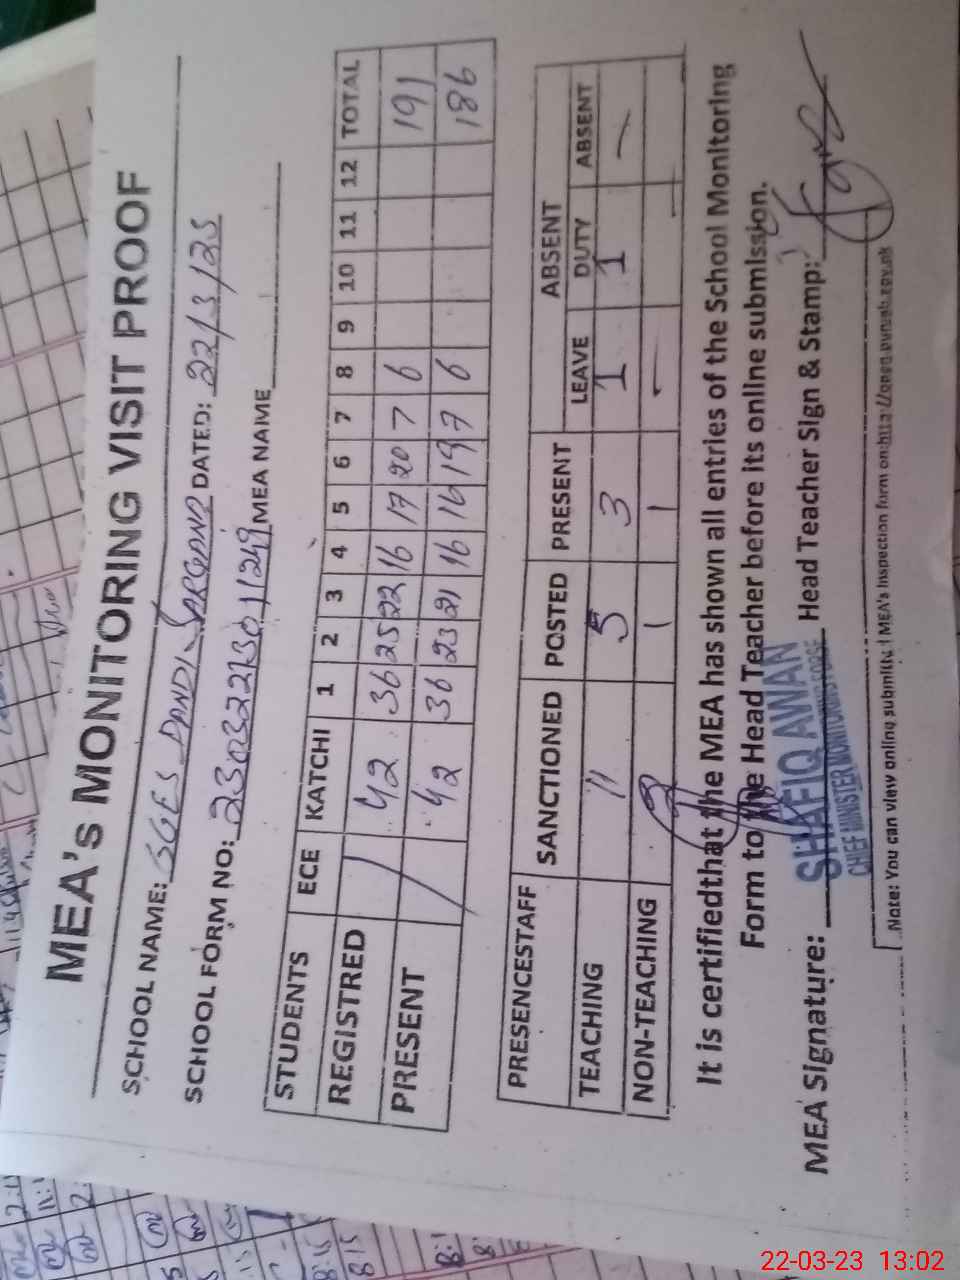 MEA's MONITORING VISIT PROOF
SCHOOL NAME: GGES DANDI SARGANA DATED: 22/3/23
SCHOOL FORM NO: 23032223011249 MEA NAME
STUDENTS ECE KATCHI 1 2 3 4 5 6 7 8 9 10 11 12 TOTAL
REGISTRED / 42 36 25 22 16 17 20 7 6 191
PRESENT / 42 36 23 21 16 16 19 7 6 186
PRESENCESTAFF SANCTIONED POSTED PRESENT ABSENT
LEAVE DUTY ABSENT
TEACHING 11 5 3 1 1 —
NON-TEACHING 2 1 1 — — —
It is certifiedthat the MEA has shown all entries of the School Monitoring
Form to the Head Teacher before its online submission.
MEA Signature: Head Teacher Sign & Stamp:
SHAFIQ AWAN
CHIEF MINISTER MONITORING FORCE
Note: You can view online MEA's Inspection form on:
22-03-23 13:02